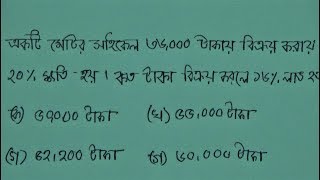 একটি মোটর সাইকেল ৩৬,০০০ টাকায় বিক্রয় করায়
২০% ক্ষতি হয়। কত টাকা বিক্রয় করলে ১৬% লাভ হবে
(ক) ৫৭০০০ টাকা (খ) ৫৫,০০০ টাকা
(গ) ৫২,২০০ টাকা (ঘ) ৬০,০০০ টাকা